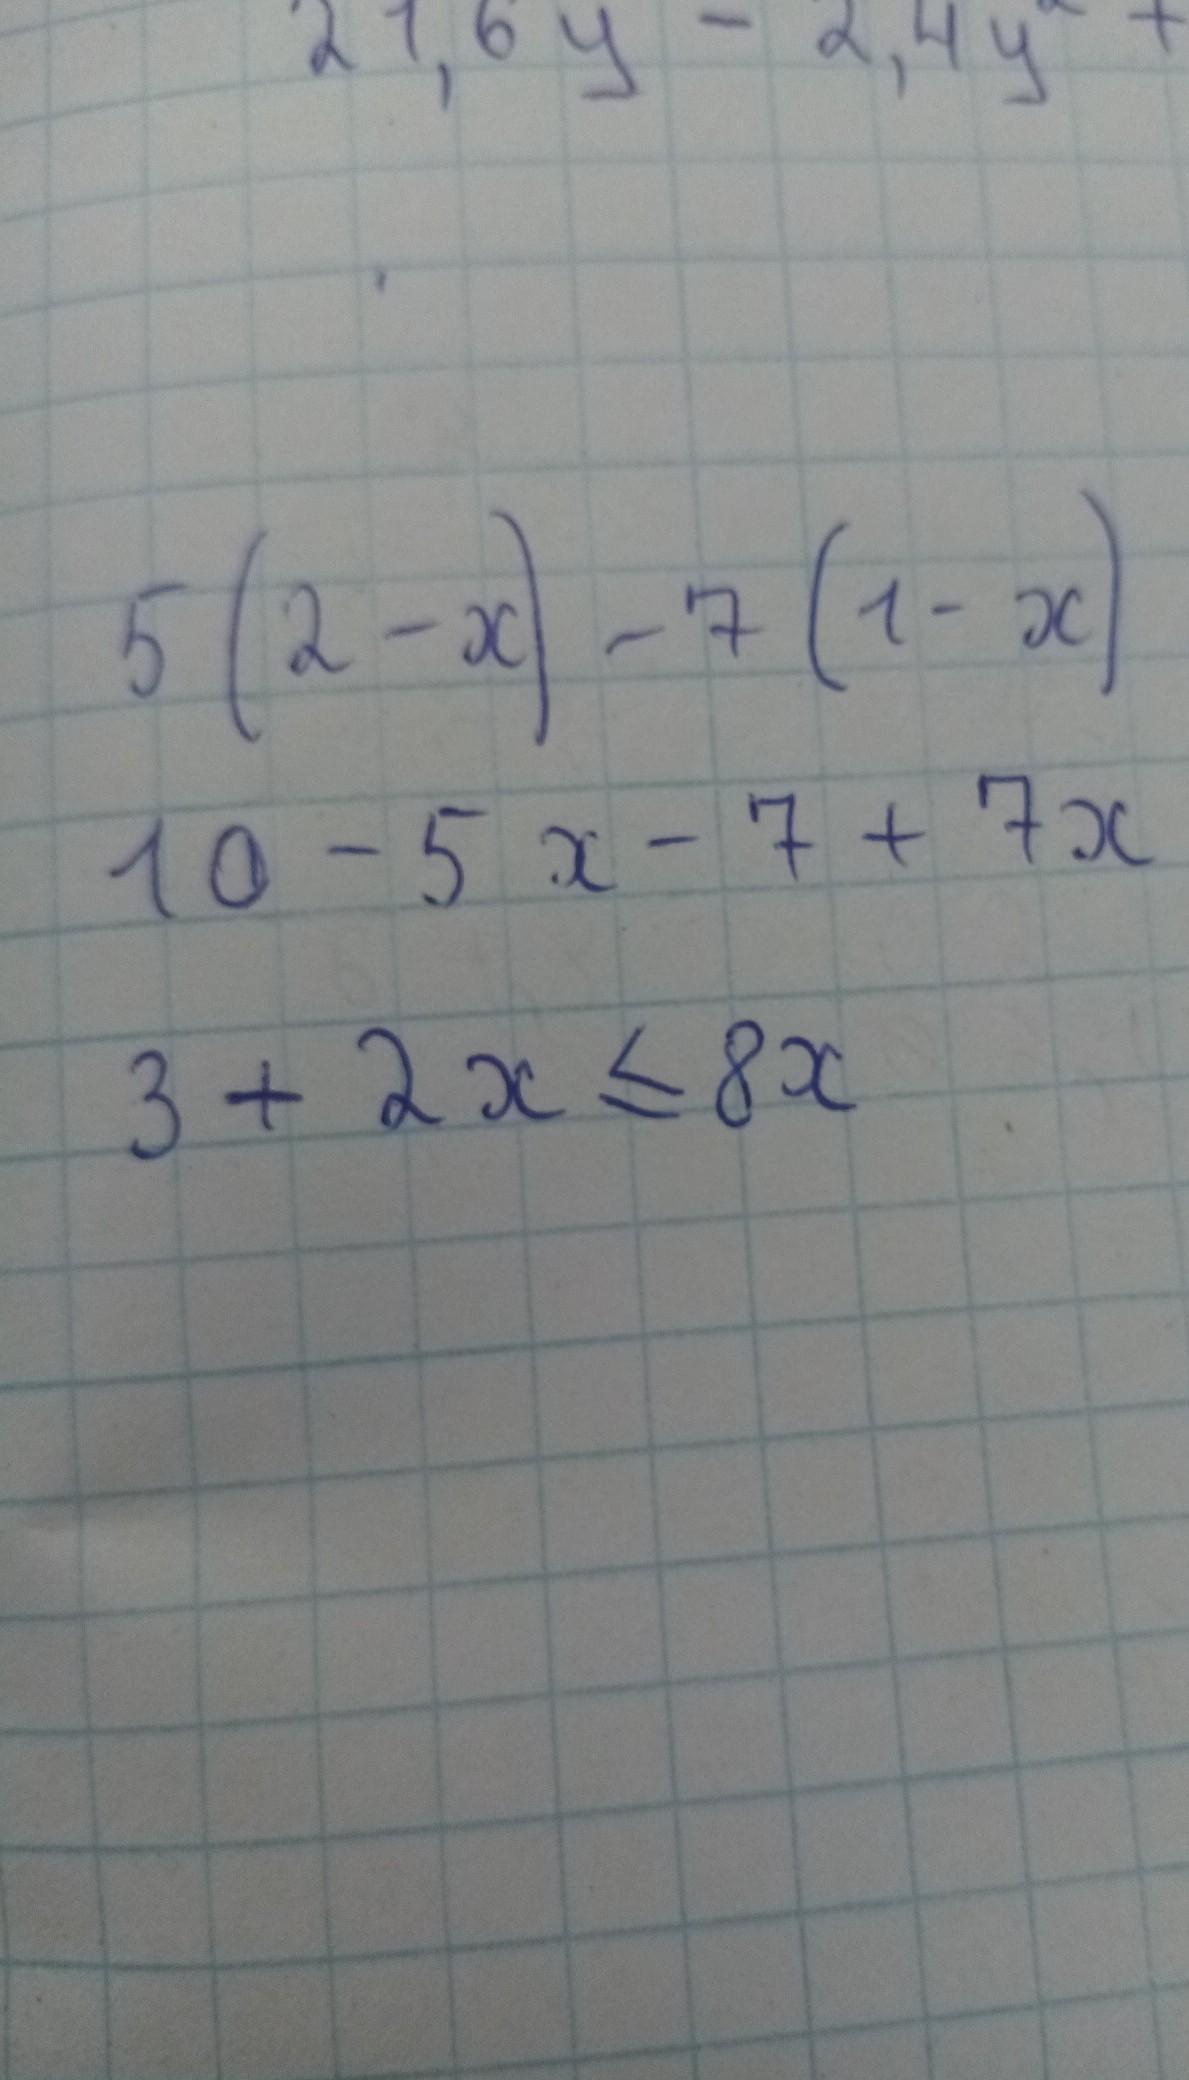 21,6y - 2,4y² +
5(2 - x) - 7(1 - x)
10 - 5x - 7 + 7x
3 + 2x ≤ 8x